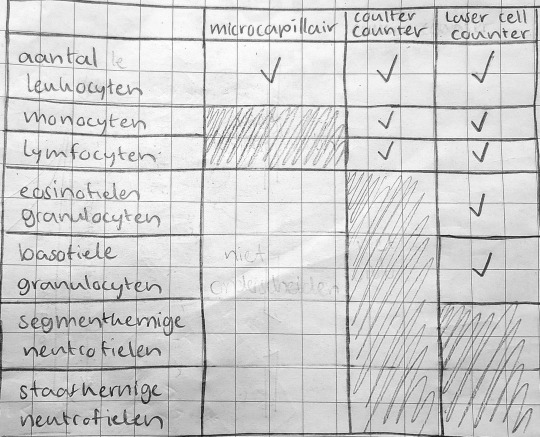 microcapillair coulter counter laser cell counter
aantal le ✓ ✓ ✓
leukocyten
monocyten ✓ ✓
lymfocyten ✓ ✓
eosinofielen
granulocyten ✓
basofiele niet ✓
granulocyten onderscheiden
segmentkernige
neutrofielen
staafkernige
neutrofielen